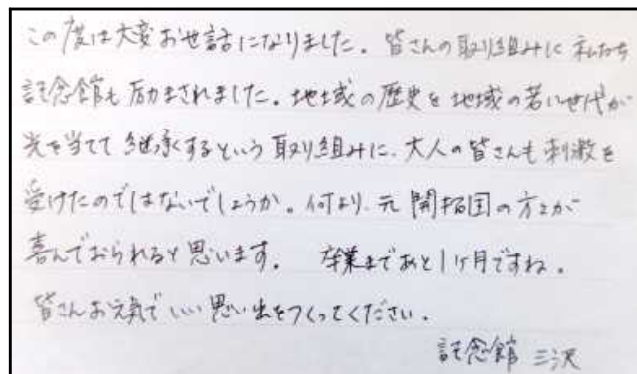 この度は大変お世話になりました。皆さんの取り組みに私たち
記念館も励まされました。地域の歴史を地域の若い世代が
光を当てて継承するという取り組みに、大人の皆さんも刺激を
受けたのではないでしょうか。何より、元開拓団の方々が
喜んでおられると思います。 卒業まであと1ヶ月ですね。
皆さんお元気でいい思い出をつくってください。
記念館 三沢